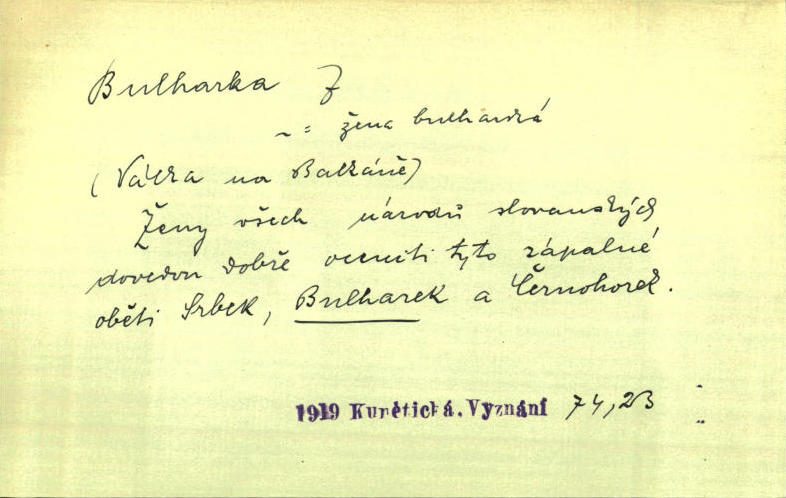 Bulharka Ž
~ = žena bulharská
(Válka na Balkáně)
Ženy všech národů slovanských
dovedou dobře oceniti tyto zápalné
oběti Srbek, Bulharek a Černohorek.
1919 Kunětická. Vyznání 74,23